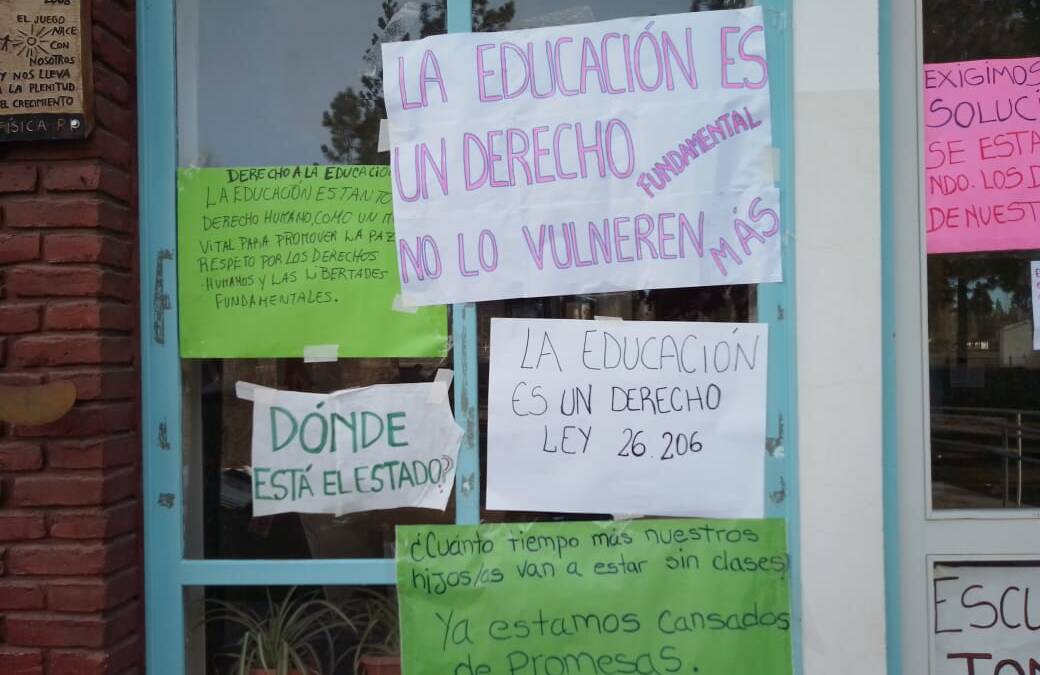 2008
EL JUEGO
NACE
CON
NOSOTROS
Y NOS LLEVA
A LA PLENITUD
EL CRECIMIENTO
FÍSICA P P
DERECHO A LA EDUCACIO
LA EDUCACIÓN ES TANTO
DERECHO HUMANO, COMO UN
VITAL PARA PROMOVER LA PAZ
RESPETO POR LOS DERECHOS
HUMANOS Y LAS LIBERTADES
FUNDAMENTALES.
LA EDUCACIÓN ES
UN DERECHO
FUNDAMENTAL
NO LO VULNEREN
MÁS
DÓNDE
ESTÁ EL ESTADO?
LA EDUCACIÓN
ES UN DERECHO
LEY 26.206
¿Cuánto tiempo más nuestros
hijos/as van a estar sin clases?
Ya estamos cansados
de Promesas.
EXIGIMOS
SOLUCI
SE ESTA
NDO. LOS D
DE NUEST
ESCU
TO